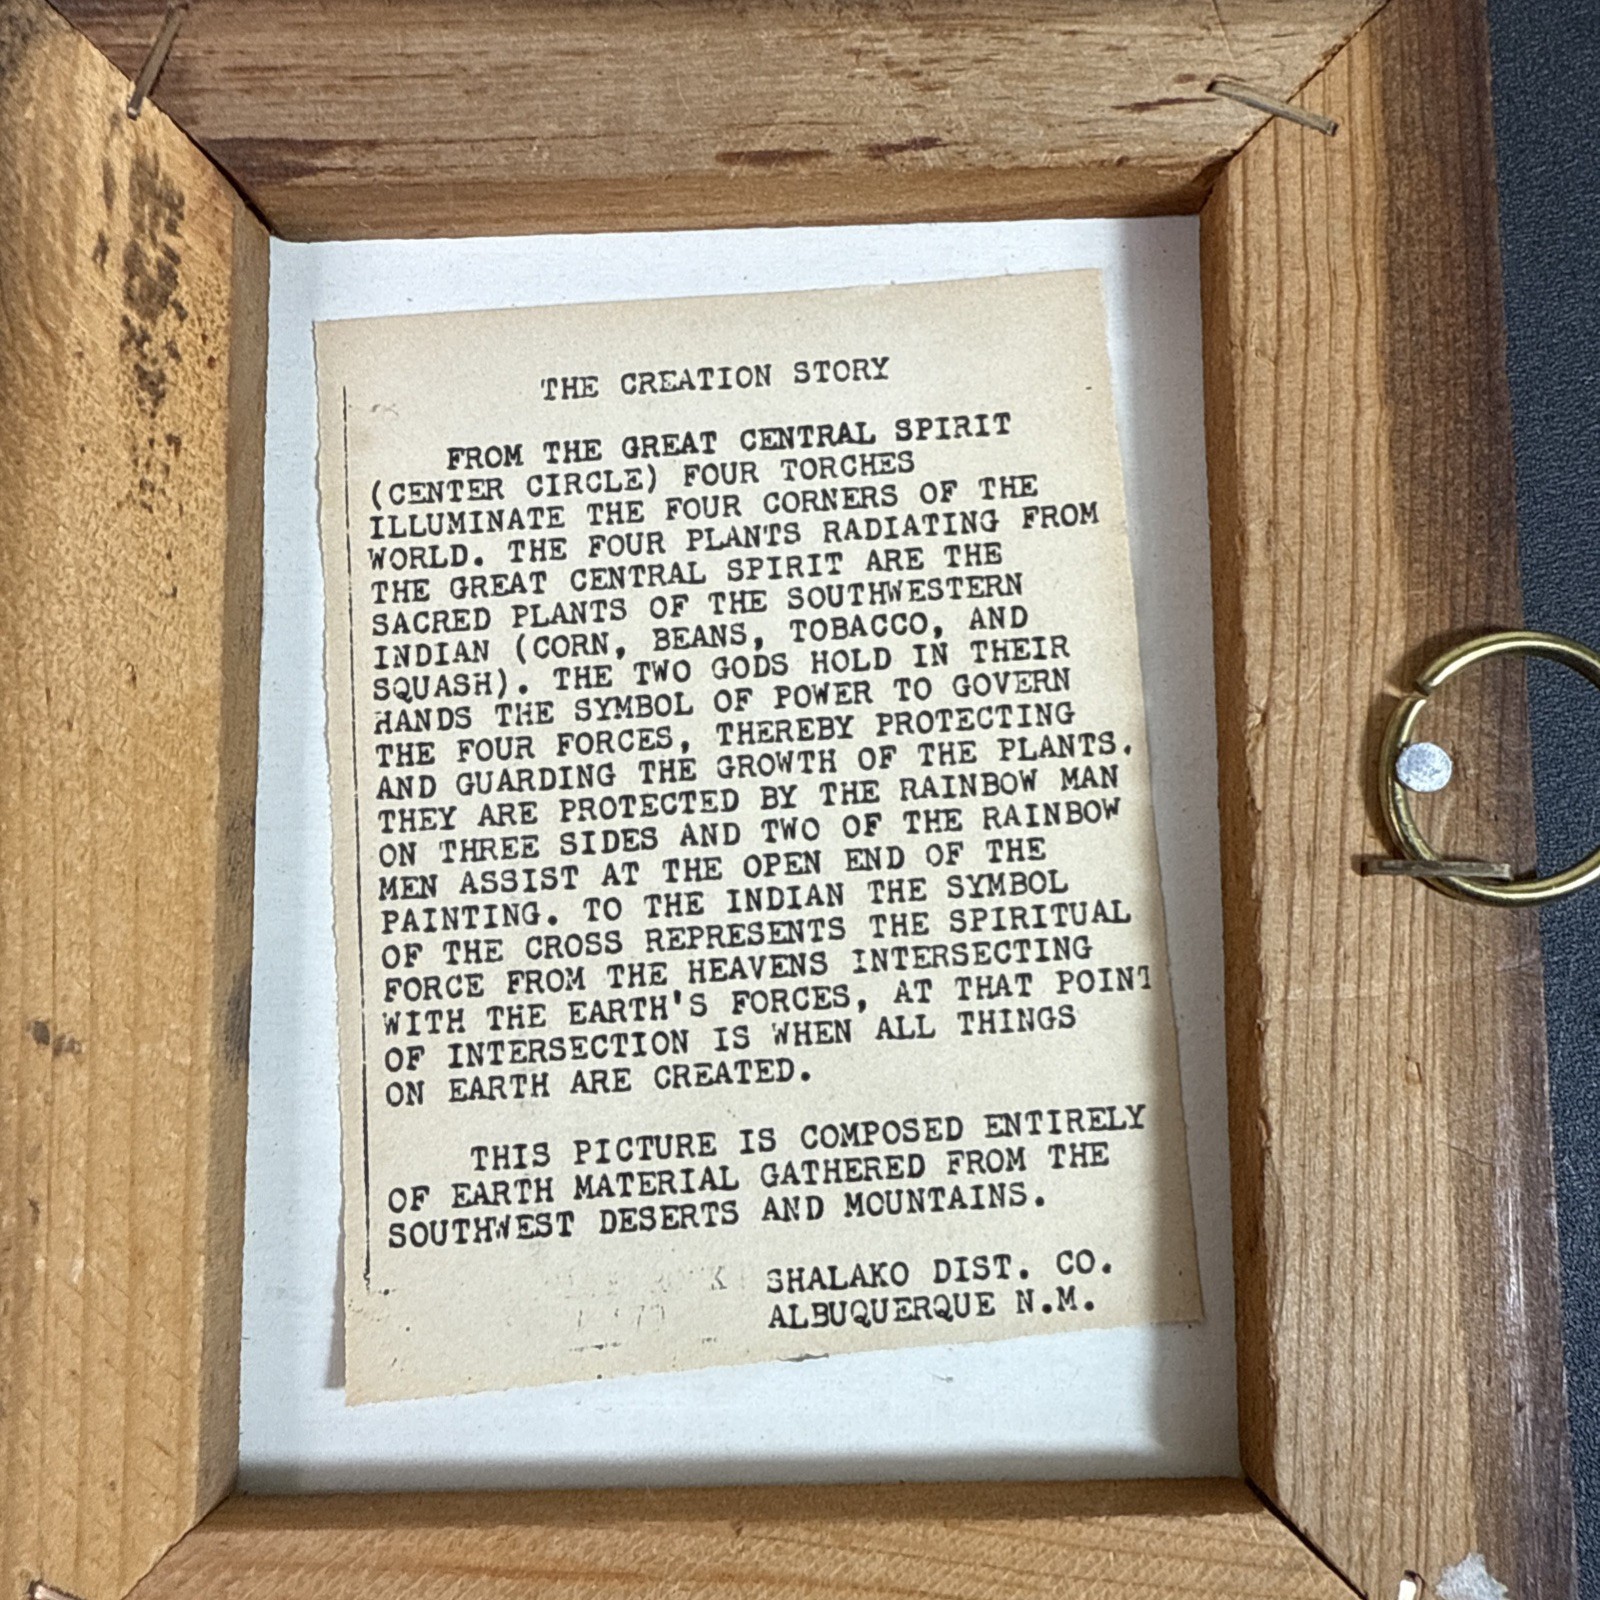 THE CREATION STORY
FROM THE GREAT CENTRAL SPIRIT
(CENTER CIRCLE) FOUR TORCHES
ILLUMINATE THE FOUR CORNERS OF THE
WORLD. THE FOUR PLANTS RADIATING FROM
THE GREAT CENTRAL SPIRIT ARE THE
SACRED PLANTS OF THE SOUTHWESTERN
INDIAN (CORN, BEANS, TOBACCO, AND
SQUASH). THE TWO GODS HOLD IN THEIR
HANDS THE SYMBOL OF POWER TO GOVERN
THE FOUR FORCES, THEREBY PROTECTING
AND GUARDING THE GROWTH OF THE PLANTS.
THEY ARE PROTECTED BY THE RAINBOW MAN
ON THREE SIDES AND TWO OF THE RAINBOW
MEN ASSIST AT THE OPEN END OF THE
PAINTING. TO THE INDIAN THE SYMBOL
OF THE CROSS REPRESENTS THE SPIRITUAL
FORCE FROM THE HEAVENS INTERSECTING
WITH THE EARTH'S FORCES, AT THAT POINT
OF INTERSECTION IS WHEN ALL THINGS
ON EARTH ARE CREATED.
THIS PICTURE IS COMPOSED ENTIRELY
OF EARTH MATERIAL GATHERED FROM THE
SOUTHWEST DESERTS AND MOUNTAINS.
SHALAKO DIST. CO.
ALBUQUERQUE N.M.